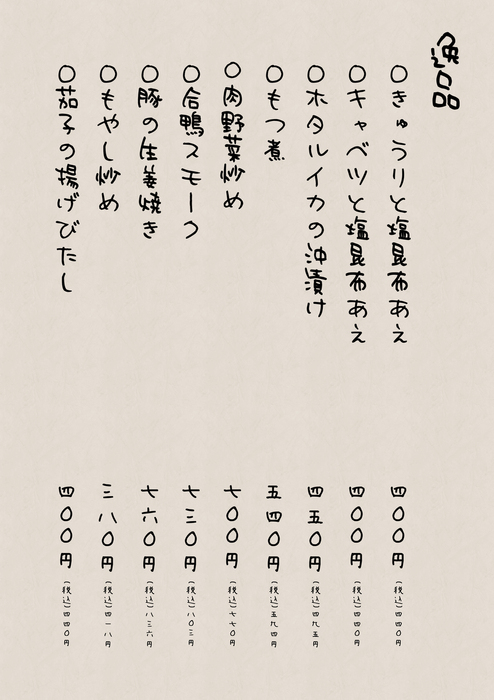 逸品
○きゅうりと塩昆布あえ 四〇〇円（税込）四四〇円
○キャベツと塩昆布あえ 四〇〇円（税込）四四〇円
○ホタルイカの沖漬け 四五〇円（税込）四九五円
○もつ煮 五四〇円（税込）五九四円
○肉野菜炒め 七〇〇円（税込）七七〇円
○合鴨スモーク 七三〇円（税込）八〇三円
○豚の生姜焼き 七六〇円（税込）八三六円
○もやし炒め 三八〇円（税込）四一八円
○茄子の揚げびたし 四〇〇円（税込）四四〇円